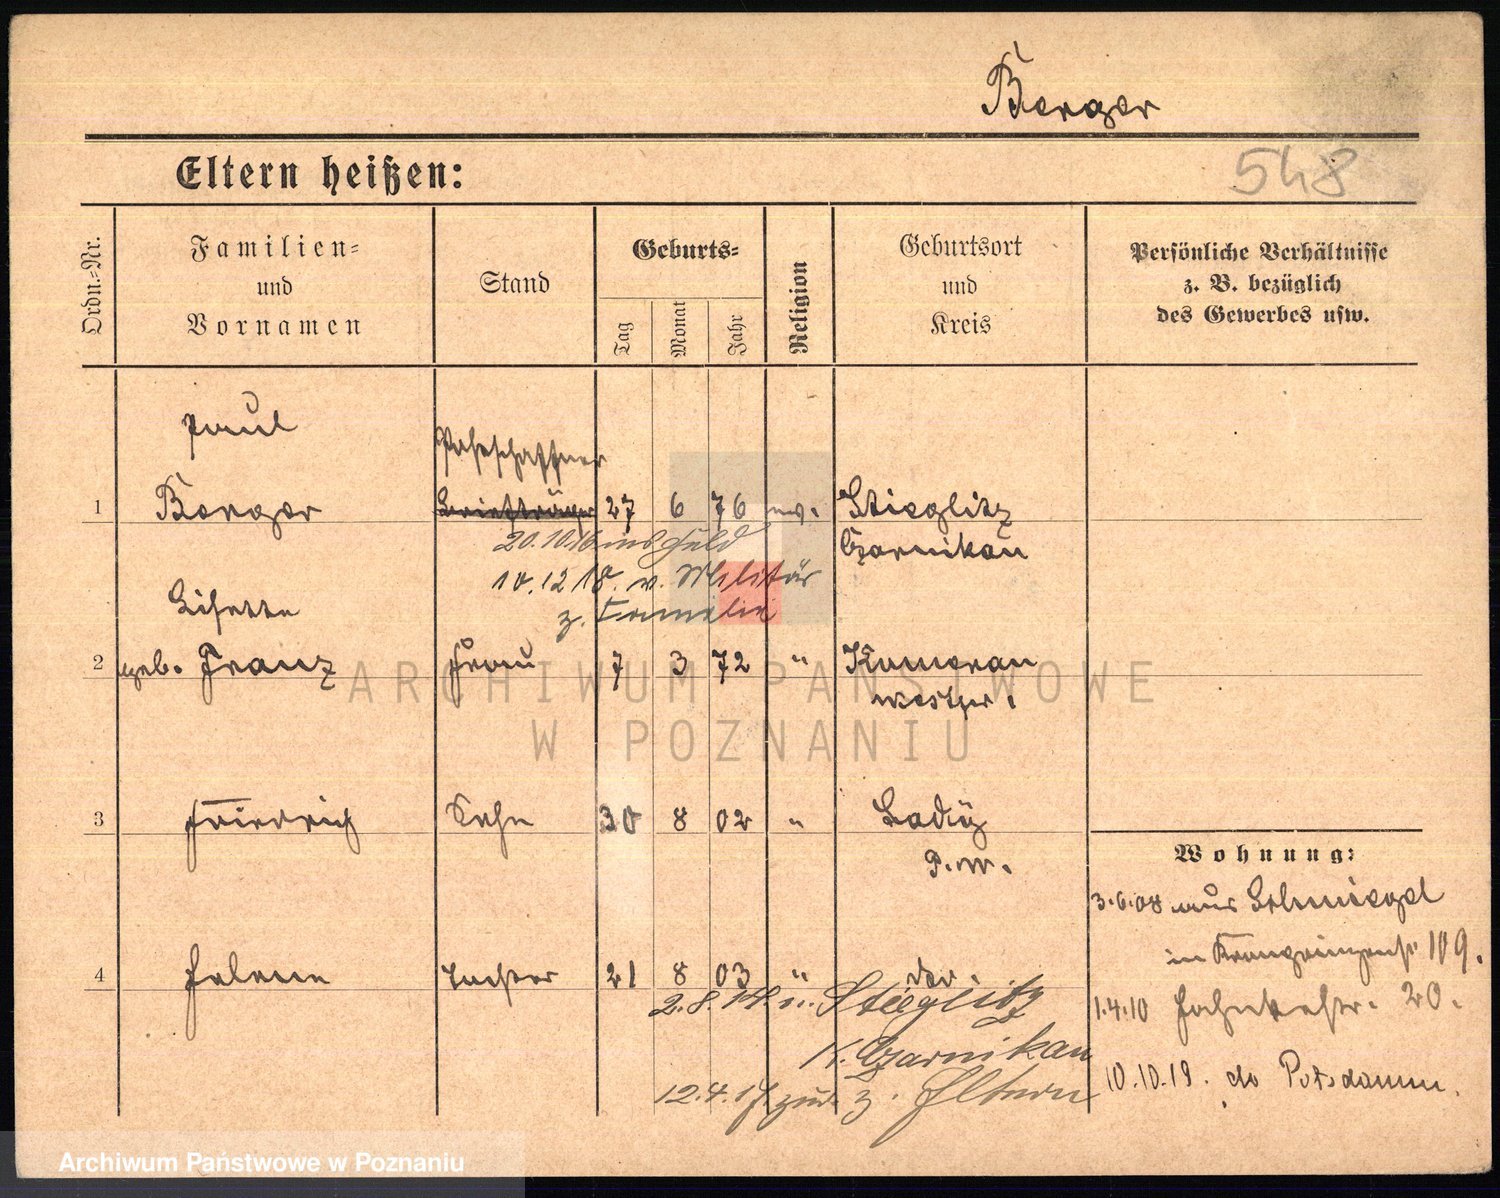 Berger
Eltern heißen:
548
Ordn.-Nr.
Familien-
und
Vornamen
Stand
Geburts-
Tag
Monat
Jahr
Religion
Geburtsort
und
Kreis
Persönliche Verhältnisse
z. B. bezüglich
des Gewerbes usw.
Paul
Postschaffner
1 Berger Briefträger 27 6 76 ev. Stieglitz
20.10.16 ins Feld Czarnikau
10.12 18. v. Militär
z. Familie
Lisette
2 geb. Franz Frau 7 3 72 "
westpr.
3 Friedrich Sohn 30 8 02 "
P.-W.
Wohnung:
3.6.08 aus Schmiegel
in Kronprinzenstr 109.
4 Helene Tochter 21 8 03 "
2.8.14. n. Stieglitz
1.4.10 20.
K. Czarnikau
10.10.19. do Potsdamm.
12.4.17 zur. z. Eltern
ARCHIWUM PAŃSTWOWE
W POZNANIU
Archiwum Państwowe w Poznaniu